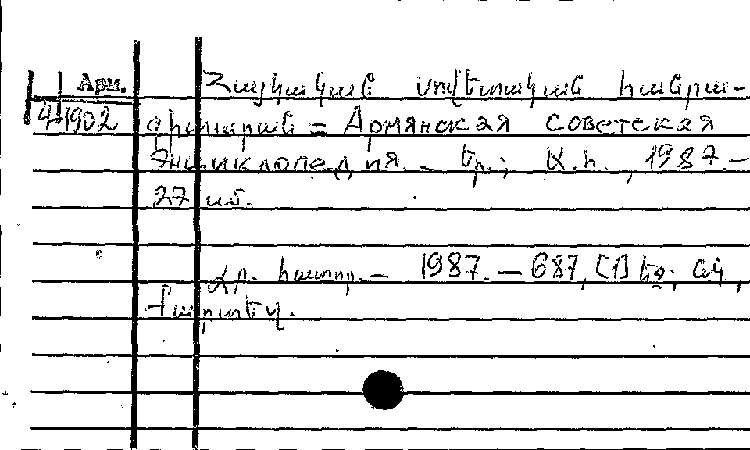 Арм. Հայկական սովետական հանրա-
4/1902 գիտարան = Армянская советская
Энциклопедия. – Եր.; Ա.հ., 1987.–
27 սմ.
հատոր. – 1987. – 687, [1] եջ; նկ.,
քարտեզ.